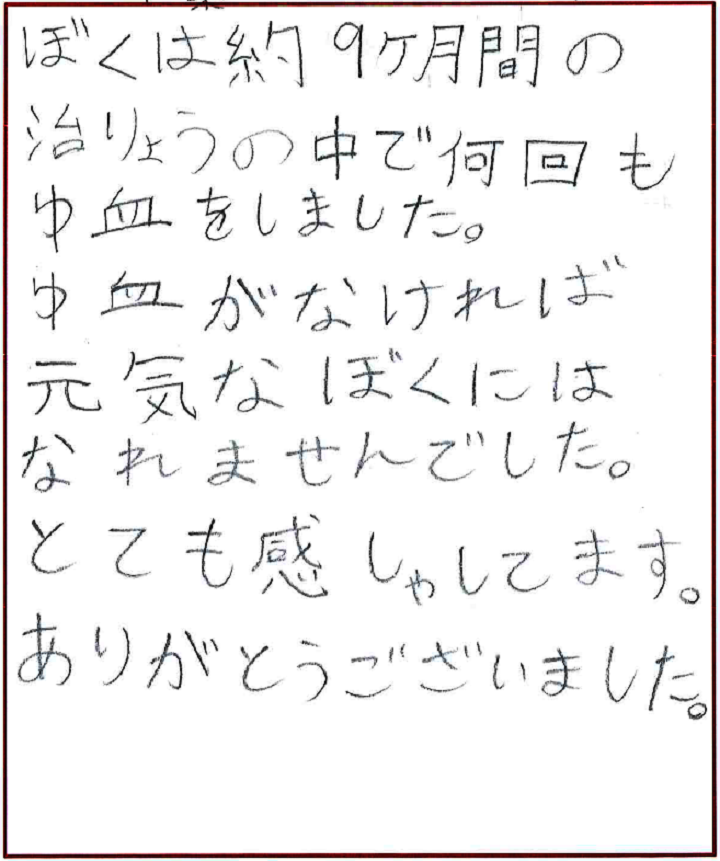 ぼくは約9ケ月間の
治りょうの中で何回も
ゆ血をしました。
ゆ血がなければ
元気なぼくには
なれませんでした。
とても感しゃしてます。
ありがとうございました。